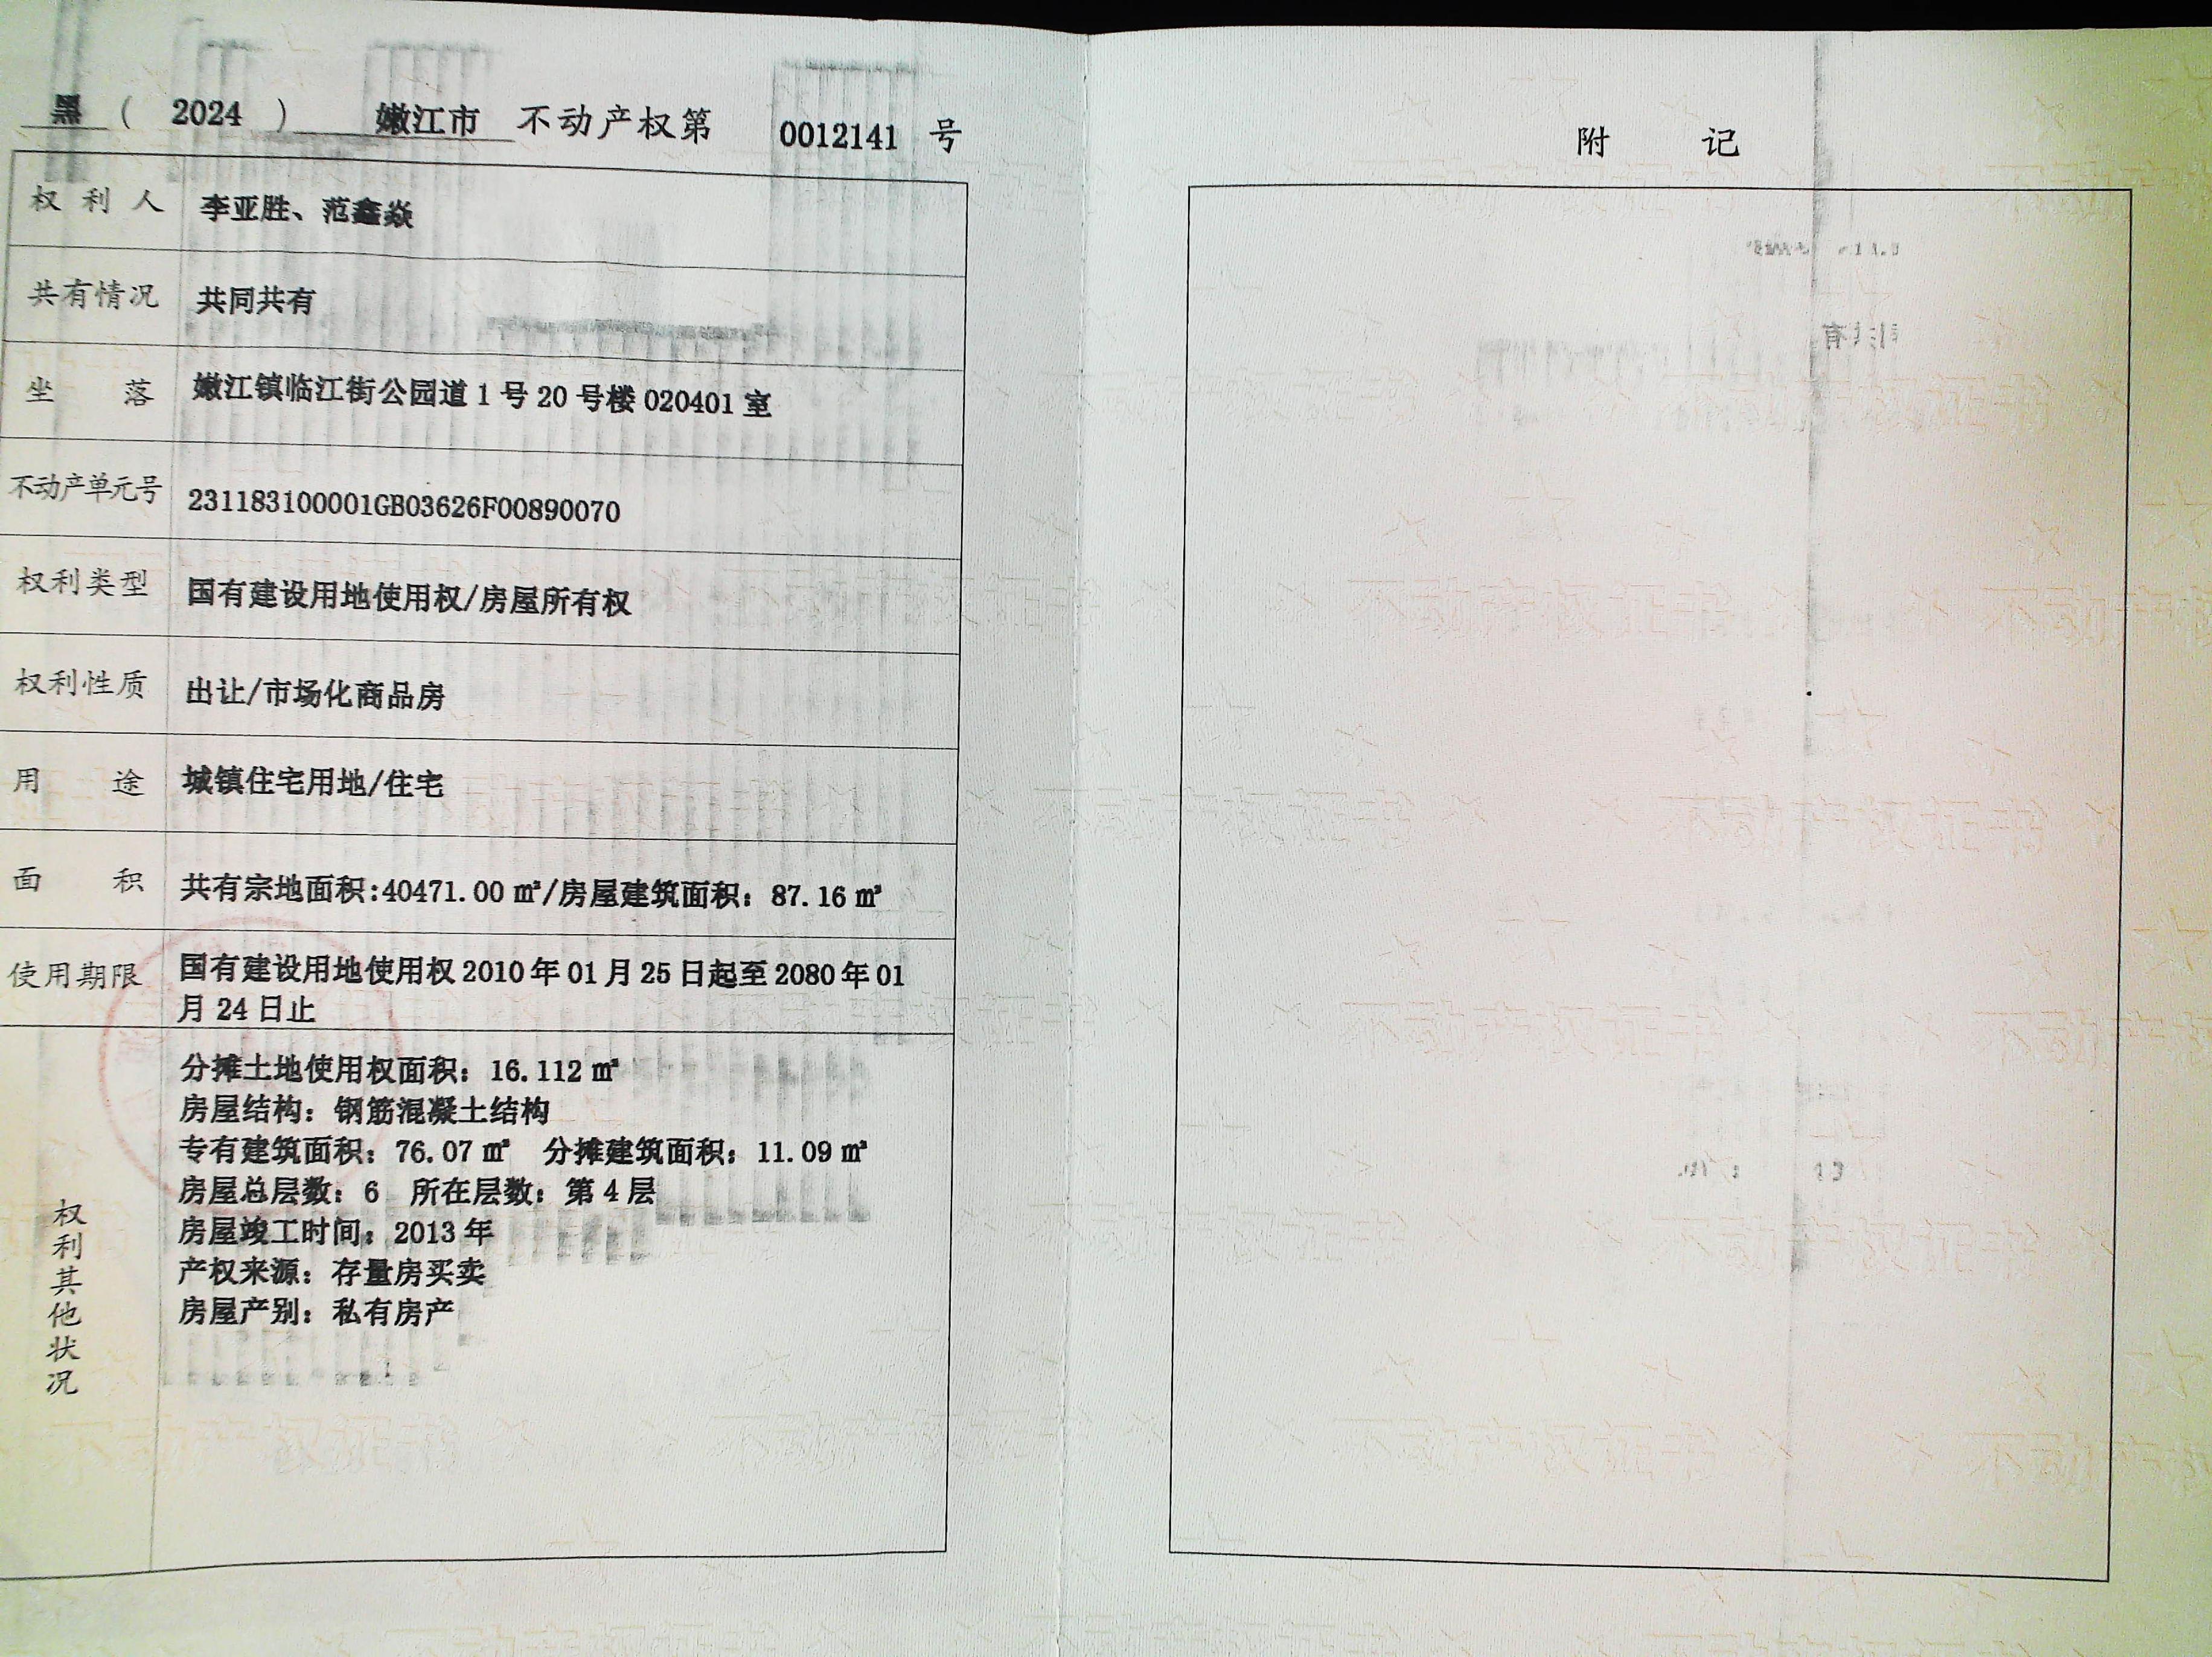 黑 ( 2024 ) 嫩江市 不动产权第 0012141 号
权利人 李亚胜、范鑫焱
共有情况 共同共有
坐落 嫩江镇临江街公园道1号20号楼020401室
不动产单元号 231183100001GB03626F00890070
权利类型 国有建设用地使用权/房屋所有权
权利性质 出让/市场化商品房
用途 城镇住宅用地/住宅
面积 共有宗地面积:40471.00㎡/房屋建筑面积：87.16㎡
使用期限 国有建设用地使用权2010年01月25日起至2080年01
月24日止
权利其他状况
分摊土地使用权面积：16.112㎡
房屋结构：钢筋混凝土结构
专有建筑面积：76.07㎡ 分摊建筑面积：11.09㎡
房屋总层数：6 所在层数：第4层
房屋竣工时间：2013年
产权来源：存量房买卖
房屋产别：私有房产
附记